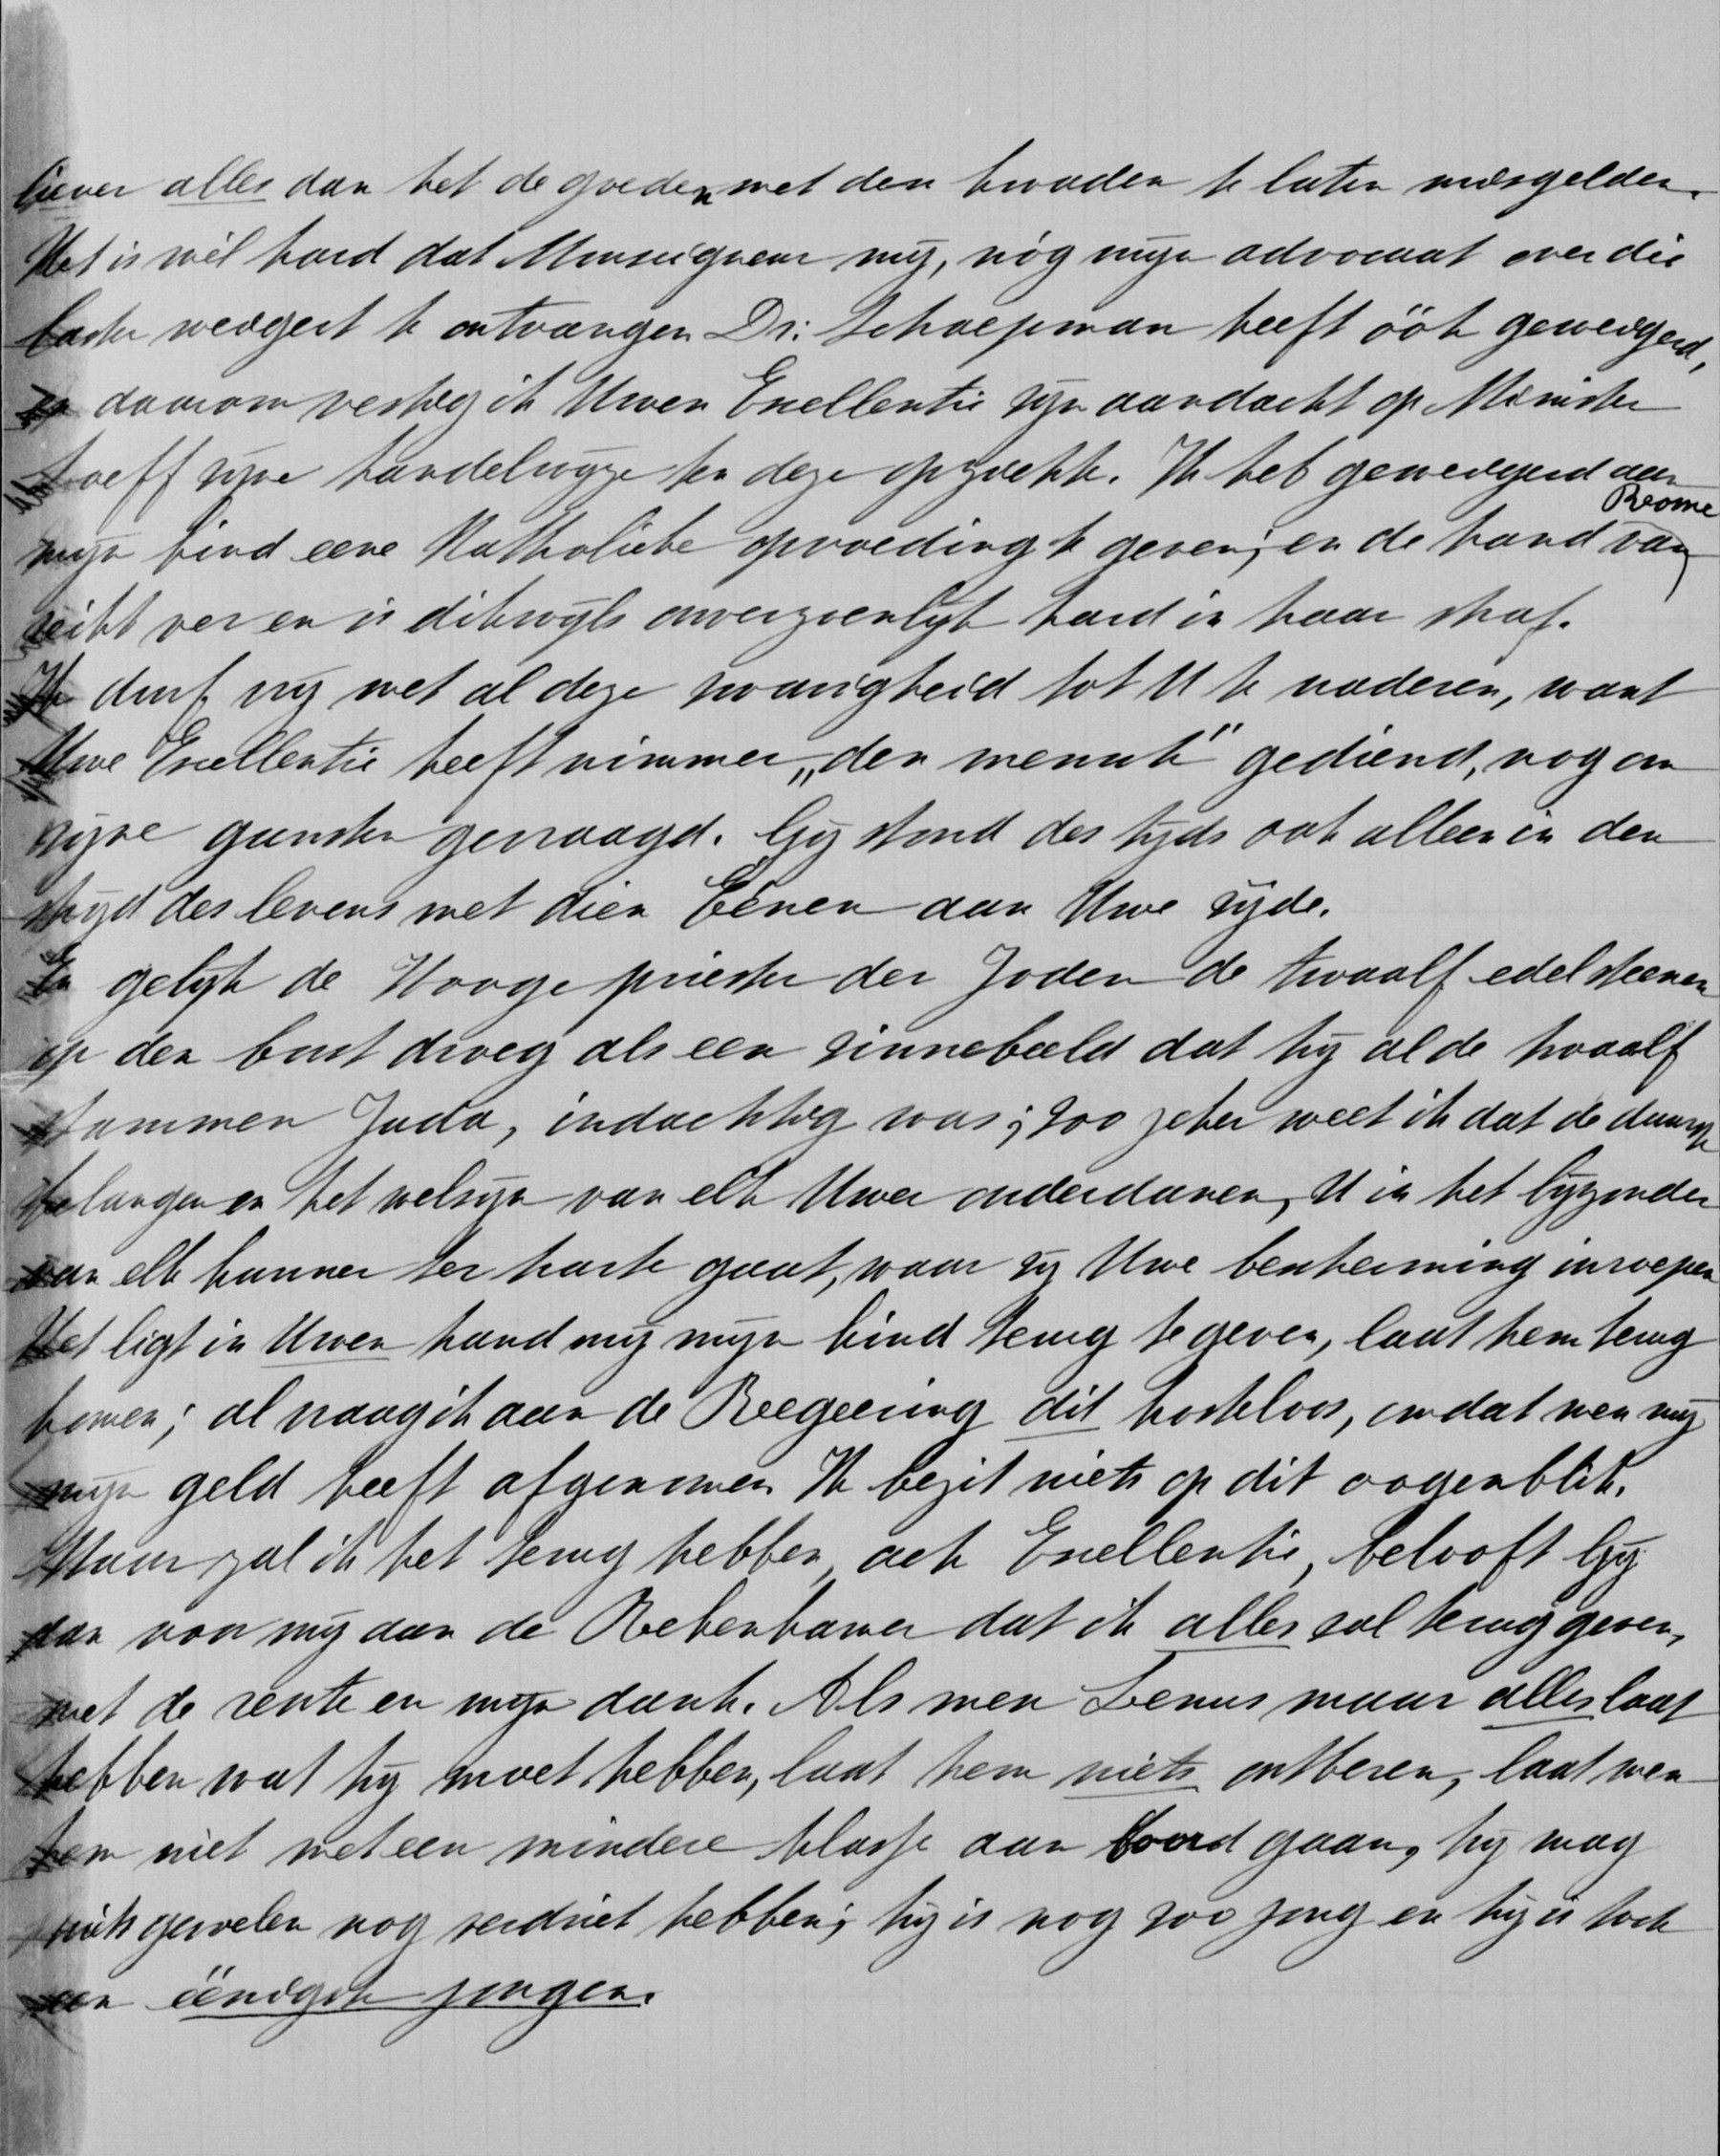 liever alles dan het de goeden met den kwaden te laten misgelden.
Het is wél hard dat Monseigneur mij, nóg mijn advocaat over die
laster weigert te ontvangen Dr: Schaepman heeft óók geweigerd,
en daarom vestig ik Uwen Excellentie zijn aandacht op Minister
Loeff zijne handelwijze ten deze opzichte. Ik heb geweigerd aan
mijn kind eene Katholieke opvoeding te geven; en de hand van Roome
reikt ver en is dikwijls onverzoenlijk hard in haar straf.
Ik durf mij met al deze zwarigheid tot U te naderen, want
Uwe Excellentie heeft nimmer „den mensch" gediend, nog om
zijne gunsten gevraagd. Gij stond des tijds ook alleen in den
strijd des levens met dien Eénen aan Uwe zijde.
En gelijk de Hooge priester der Joden de twaalf edelsteenen
op den borst droeg als een zinnebeeld dat hij al de twaalf
stammen Juda, indachtig was; zoo zeker weet ik dat de duurste
belangen en het welzijn van elk Uwer onderdanen, U in het bijzonder
van elk hunner ter harte gaat, waar zij Uwe bescherming inroepen
Het ligt in Uwen hand mij mijn kind terug te geven, laat hem terug
komen; al vraag ik aan de Regeering dit kosteloos, omdat men mij
mijn geld heeft afgenomen Ik bezit niets op dit oogenblik.
Maar zal ik het terug hebben, ach Excellentie, belooft Gij
dan voor mij aan de Rekenkamer dat ik alles zal terug geven,
met de rente en mijn dank. Als men maar alles laat
hebben wat hij moet hebben, laat hem niets ontberen, laat men
hem niet met een mindere klasse aan boord gaan, hij mag
niets gevoelen nog verdriet hebben; hij is nog zoo jong en hij is toch
een éénigste jongen.